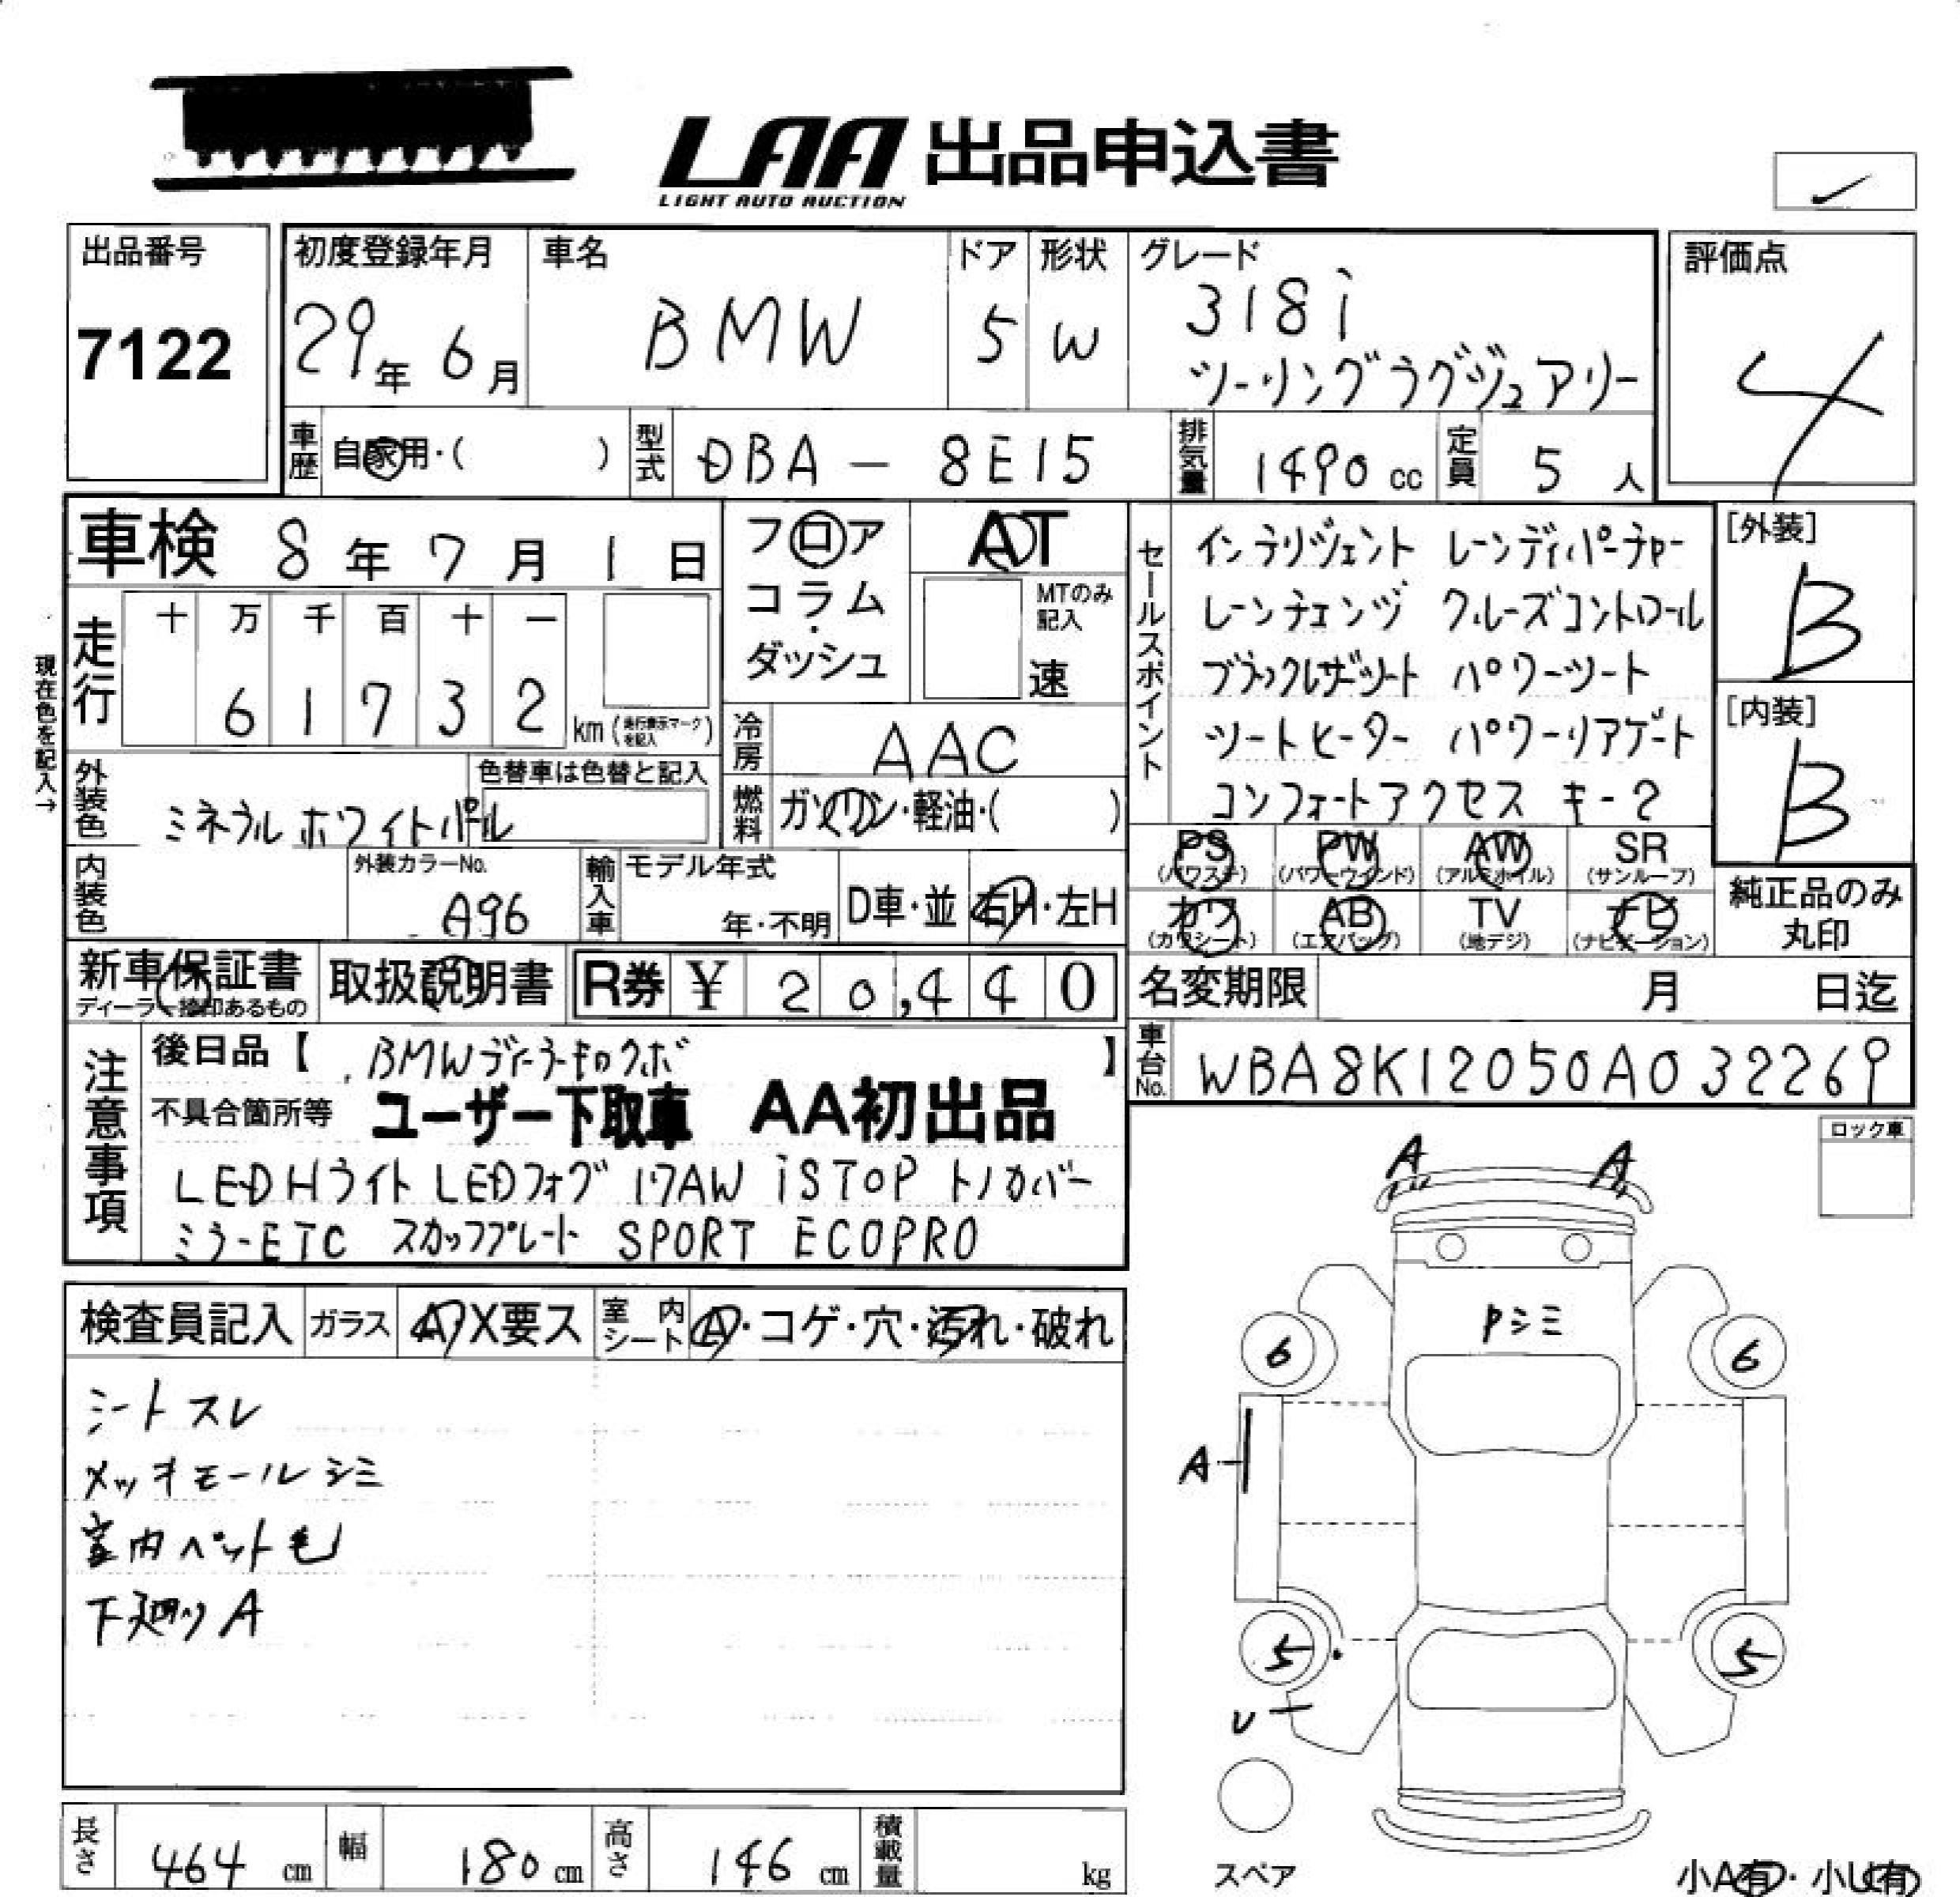 LAA 出品申込書
LIGHT AUTO AUCTION
出品番号
7122
初度登録年月
29年 6月
車名
BMW
ドア
5
形状
W
グレード
318i
ツーリングラグジュアリー
評価点
4
車歴 自家用・( )
型式 DBA - 8E15
排気量 1490 cc
定員 5 人
車検 8年 7月 1日
走行 十 万 千 百 十 一
6 1 7 3 2 km (走行表示マークを記入)
現在色を記入→
フロア
コラム
・
ダッシュ
AT
MTのみ記入
速
冷房 AAC
燃料 ガソリン・軽油・( )
セールスポイント
インテリジェント レーンディパーチャー
レーンチェンジ クルーズコントロール
ブラックレザーシート パワーシート
シートヒーター パワーリアゲート
コンフォートアクセス キー2
[外装]
B
[内装]
B
外装色 ミネラルホワイトパール
色替車は色替と記入
内装色
外装カラーNo.
A96
輸入車 モデル年式
年・不明
D車・並 右H・左H
PS (パワステ)
PW (パワーウインド)
AW (アルミホイル)
SR (サンルーフ)
カワ (カワシート)
AB (エアバッグ)
TV (地デジ)
ナビ (ナビゲーション)
純正品のみ
丸印
新車保証書
ディーラー捺印あるもの
取扱説明書
R券 ¥ 20,440
名変期限 月 日迄
車台No. WBA8K12050A032269
注意事項
後日品【 】
不具合箇所等 ユーザー下取車 AA初出品
LEDHライト LEDフォグ 17AW iSTOP トノカバー
ミラーETC スカッフプレート SPORT ECOPRO
ロック車
検査員記入 ガラス A・X要ス 室内シート A・コゲ・穴・汚れ・破れ
シートスレ
メッキモールシミ
室内ペット毛
下廻りA
A
A
Pシミ
6
6
A
5
5
U
スペア
小A有・小U有
長さ 464 cm
幅 180 cm
高さ 146 cm
積載量 kg